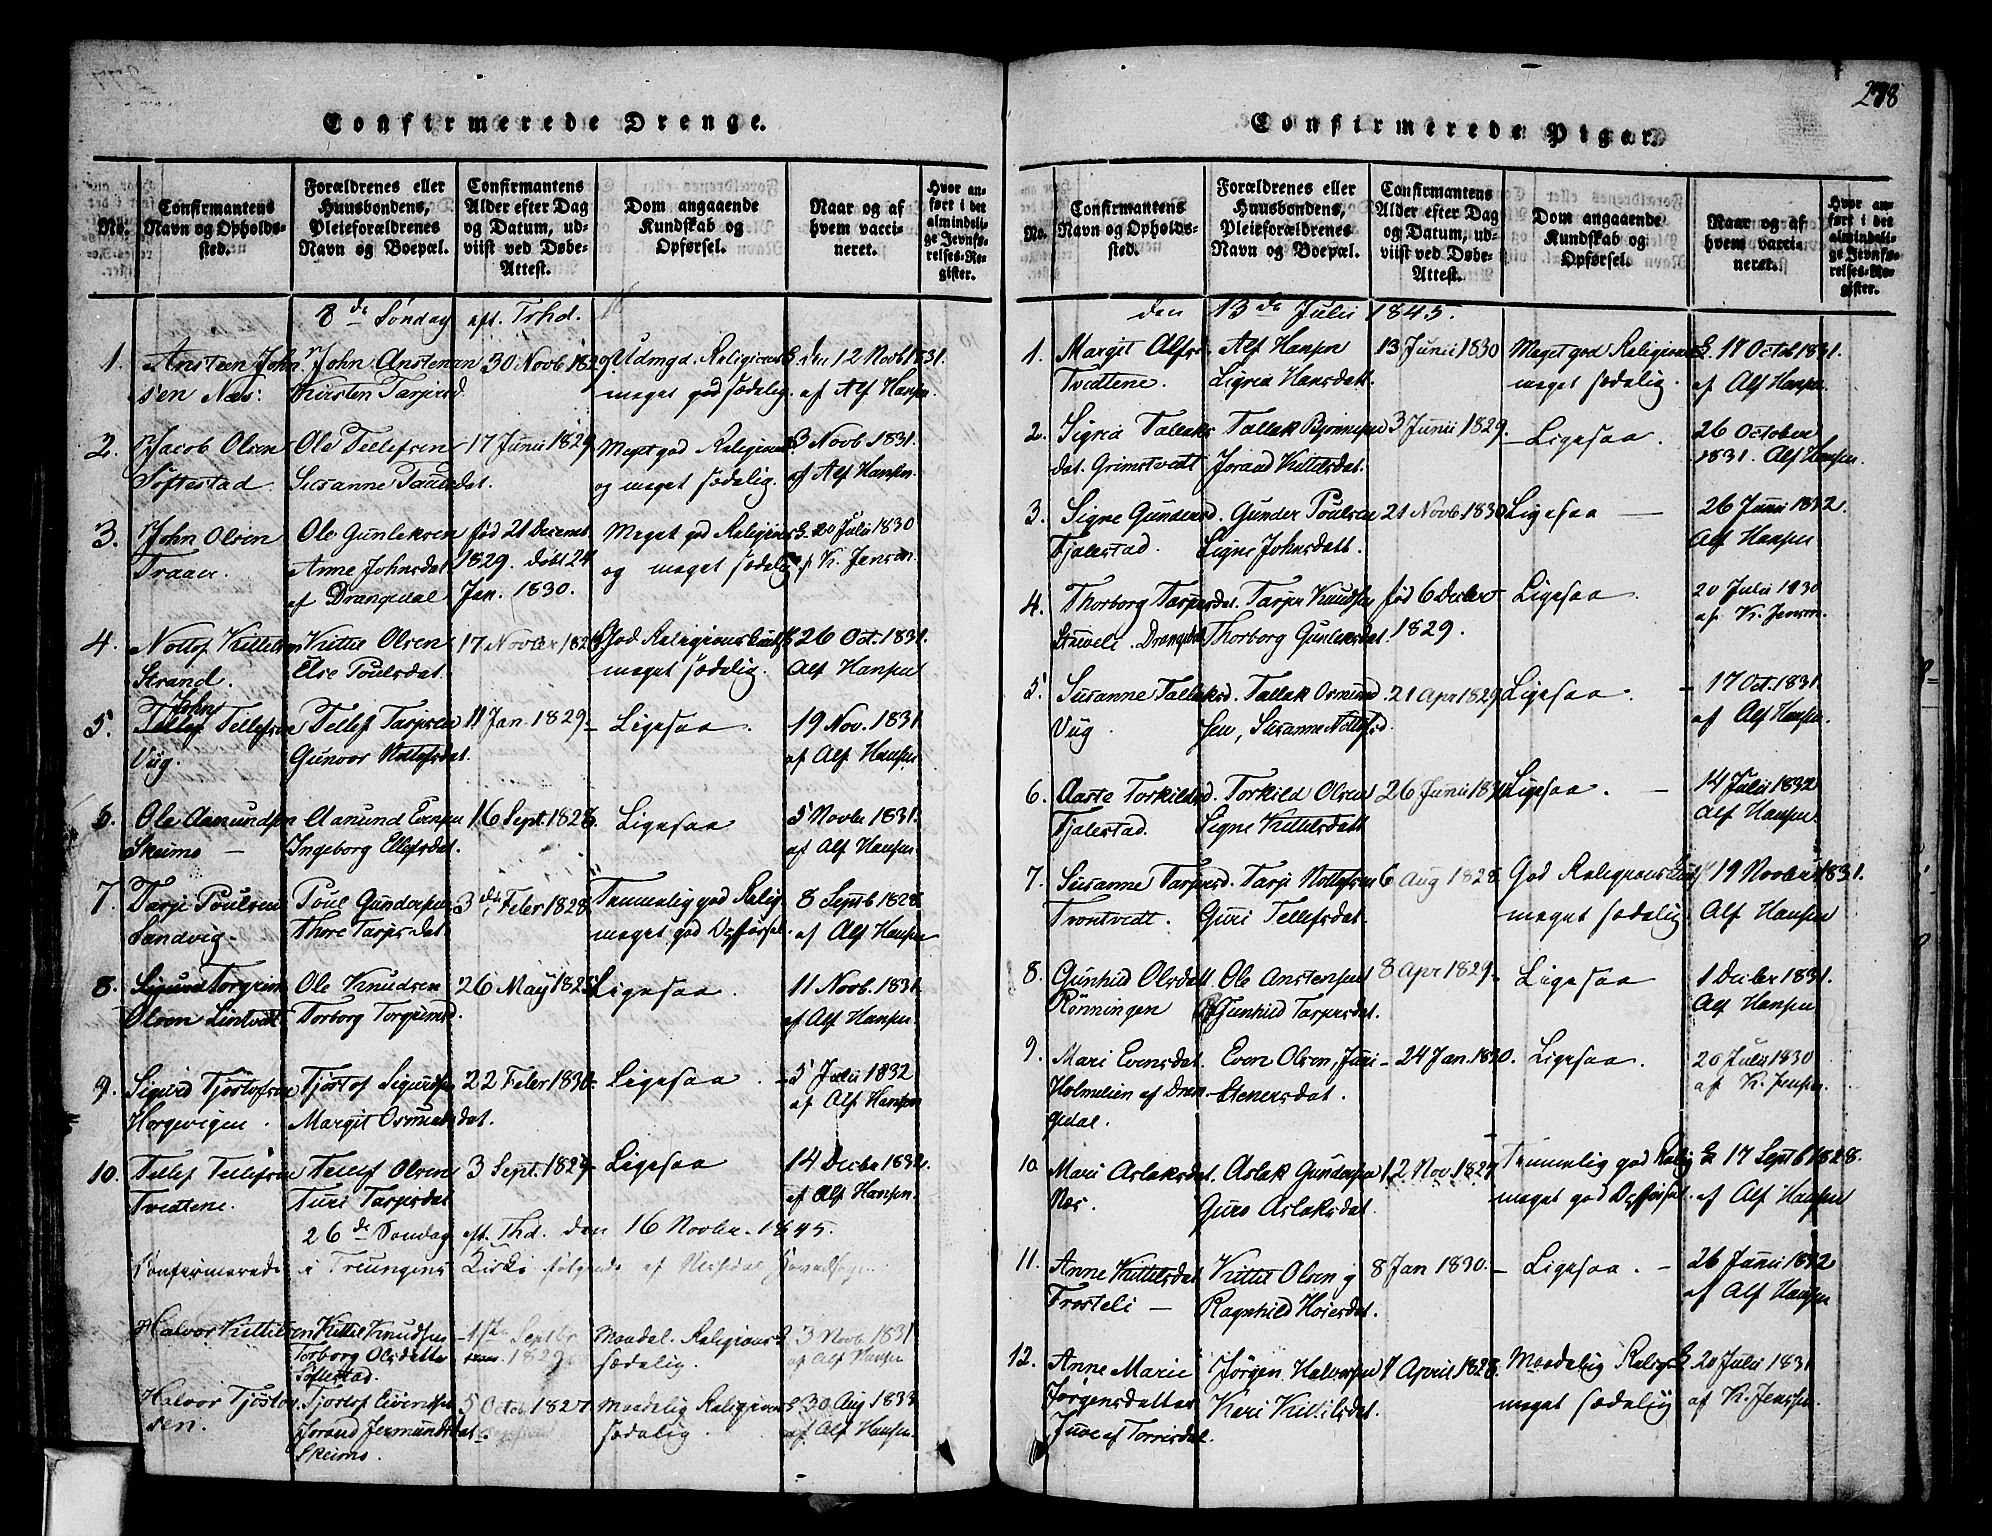 278
Confirmerede Drenge.
No.
Confirmantens Navn og Opholdssted.
Forældrenes eller Huusbondens, Pleieforældrenes Navn og Boepæl.
Confirmantens Alder efter Dag og Datum, udviist ved Døbe-Attest.
Dom angaaende Kundskab og Opførsel.
Naar og af hvem vaccineret.
Hvor anført i det almindelige Jevnførelses-Register.
8de Søndag eft. Trhd.
1. Ansteen John John Anstensen 30 Novb 1829 Udmgd. Religionsk. den 12 Novb 1831.
sen Næs. Kirsten Tarjeisd. meget god sædelig. af Alf Hansen.
2. Jacob Olsen Ole Tellefsen 17 Junii 1829. Meget god Religions 3 Novb 1831.
Softestad. Susanne Taudsdat. og meget sædelig. af Alf Hansen.
3. John Olsen Ole Gunleksen fød 21 Decemb. Meget god Religions 20 Julii 1830
Traaer. Anne Johnsdat 1829. døbt 24 og meget sædelig af K. Jensen.
af Drangedal Jan. 1830.
4. Nottof Kittels Kittil Olsen 17 Novber 1828 God Religions kunds. 26 Oct. 1831.
Strand. Else Poulsdat. meget sædelig. Alf Hansen
Johns
5. Tellef Tellefsen Tellef Tarjesen 11 Jan. 1829 Ligesaa. 19 Nov. 1831.
Vüg. Gunvor Nottefsdat. af Alf Hansen
6. Ole Aamundsen Aamund Evensen 16 Sept. 1828. Ligesaa 5 Novbr 1831.
Skeimo Ingeborg Ellefsdat. af Alf Hansen.
7. Tarje Poulsen Poul Gundersen 3de Feber 1828. Temmelig god Relig. 8 Septb 1828
Sandvig. Thore Tarjesdat. meget god Opførsel. af Alf Hansen
8. Sigurd Torgrim Ole Knudsen 26 May 1828 Ligesaa. 11 Novb. 1831.
Olsen Lintvedt Torborg Torgrimsd. af Alf Hansen.
9. Sigurd Tjøstofsen Tjøstof Sigurdsen 22 Feber 1830 Ligesaa. 5 Julii 1832
Horgevigen. Margit Osmundsdat. af Alf Hansen
10. Tellef Tellefsen Tellef Olsen 3 Sept. 1829 Ligesaa 14 Decbr 1832.
Tvedtene. Turi Tarjesdat af Alf Hansen.
26de Søndag eft. Thd. den 16 Novbr. 1845.
Confirmerede i Treungens Kirke følgende af Nissedal Hovedsogn
Halvor Kittilsen Kittil Knudsen 1ste Septbr Maadel. Religions 3 Novb 1831
Torborg Olsdatter 1829 sædelig. af Alf Hansen
Softestad.
Halvor Tjøstof Tjøstof Eivindsen 5 Octob 1827 Maadelig Religions 30 Aug 1833
sen. Jorand Jermundsdat sædelig. af Alf Hansen.
Skeimo.
Confirmerede Piger.
No.
Confirmantens Navn og Opholdssted.
Forældrenes eller Huusbondens, Pleieforældrenes Navn og Boepæl.
Confirmantens Alder efter Dag og Datum, udviist ved Døbe-Attest.
Dom angaaende Kundskab og Opførsel.
Naar og af hvem vaccineret.
Hvor anført i det almindelige Jevnførelses-Register.
den 13de Julii 1845.
1. Margit Alfsd. Alf Hansen 13 Junii 1830 Meget god Religions 17 Octob 1831.
Tvedtene. Sigrid Hansdatt. meget sædelig. af Alf Hansen.
2. Sigrid Talleks Tallak Bjørnsen 3 Junii 1829. Ligesaa. 26 October
dat. Grimstvedt Jorand Kittelsdat. 1831. Alf Hansen.
3. Signe Gundersd. Gunder Poulsen 21 Novb. 1830 Ligesaa 26 Junii 1832.
Fjalestad. Signe Johnsdatt. Alf Hansen
4. Thorborg Tarjesdat. Tarje Knudsen fød 6 Decbr Ligesaa 20 Julii 1830
Drangedal Thorborg Gunleksdat 1829. af K. Jensen.
5. Susanne Talleksd. Tallak Osmund 21 Apr 1829 Ligesaa. 17 Oct. 1831.
Vüg. sen, Susanne Nottefsd. af Alf Hansen.
6. Aaste Torkildsd. Torkild Olsen 26 Junii 1830 Ligesaa. 14 Julii 1832
Fjalestad. Signe Kittelsdatt Alf Hansen.
7. Susanne Tarjesd. Tarje Nottefsen 6 Aug 1828 God Religions kunds. 19 Novber 1831.
Trontvedt. Guri Tellefsdat. meget sædelig. Alf Hansen
8. Gunhild Olsdatt Ole Anstensen 8 Apr 1829 Ligesaa 1 Decber 1831.
Rönningen Gunhild Tarjesdat. Alf Hansen
9. Mari Evensdat. Even Olsen, Juri 24 Jan. 1830. Ligesaa. 20 Julii 1830
Holmelien af Dran- Stenersdat. af K. Jensen.
gedal.
10 Mari Aslaksdat. Aslak Gundersen 12 Nov. 1827 Temmelig god Relig 17 Septb 1828.
Næs. Guro Aslaksdat. meget god Opførsel. af Alf Hansen
11. Anne Kittelsdat Kittel Olsen og 8 Jan 1830. Ligesaa. 26 Junii 1832
Frosteli Ragnhild Hoiesdat. af Alf Hansen
12. Anne Marie Jørgen Halvorsen 7 April 1828. Maadelig Relig. 20 Julii 1831
Jørgensdatter Kari Kittilsdat. meget sædelig af K. Jensen.
Juve af Torrisdal.